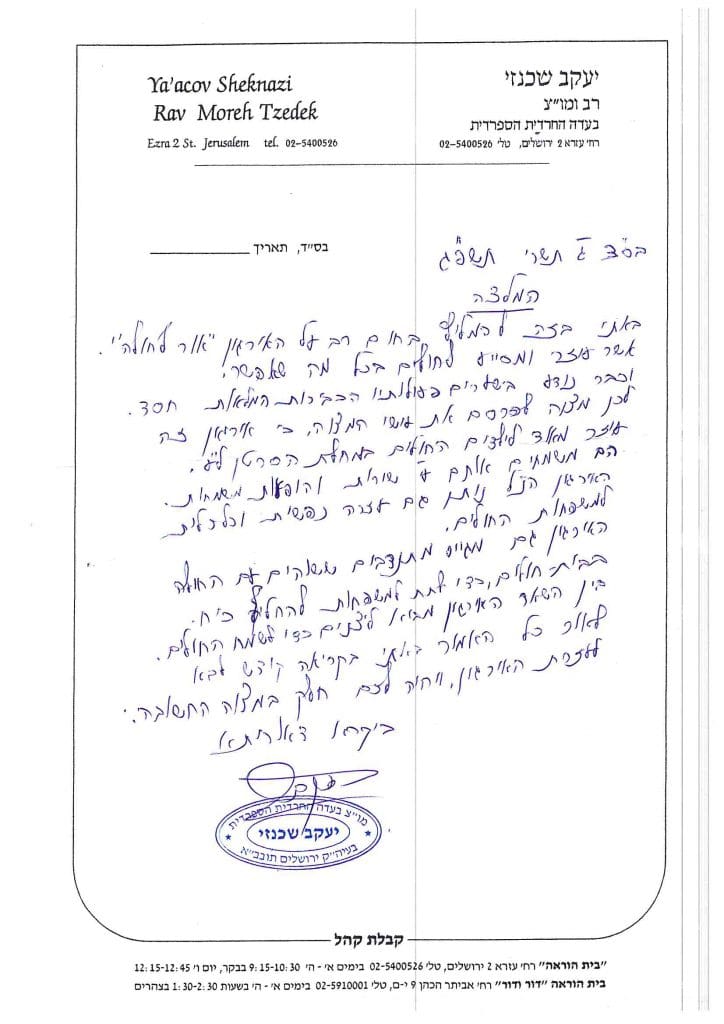 Ya'acov Sheknazi
Rav Moreh Tzedek
Ezra 2 St. Jerusalem tel. 02-5400526
יעקב שכנזי
רב ומו״צ
בעדה החרדית הספרדית
רח׳ עזרא 2 ירושלים, טל׳ 02-5400526
בס״ד, תאריך
בס״ד ג תשרי תשפ״ג
המלצה
באתי בזה להמליץ בחום רב על האירגון ״אור לחולה״.
אשר עוזר ומסייע לחולים בכל מה שאפשר,
וכבר נודע בישערים פעולותיו הכבירות המלאות חסד.
לכן מצוה לפרסם את עושי המצוה, כי אירגון זה
עוזר מאד לילדים החולים במחלת הסרטן ל״ע,
הם משמחים אותם ע״י שירות והופעות משמחות.
האירגון הנ״ל נותן גם עזרה נפשית וכלכלית
למשפחות החולים.
האירגון גם מגייס מתנדבים ששוהים עם החולה
בבית חולים, כדי לתת למשפחות להחליף כ״ח.
בין השאר האירגון מביא ליצנים כדי לשמח החולים.
לאור כל האמור באתי בקריאה קודש לבא
לעזרת האירגון, ויהיה לכם חלק במצוה החשובה.
ביקרא דאורייתא
מו״צ בעדה החרדית הספרדית
יעקב שכנזי
בעיה״ק ירושלים תובב״א
קבלת קהל
״בית הוראה״ רח׳ עזרא 2 ירושלים, טל׳ 02-5400526 בימים א׳ - ה׳ 9:15-10:30 בבקר, יום ו׳ 12:15-12:45
בית הוראה ״דור ודור״ רח׳ אביתר הכהן 9 י-ם, טל׳ 02-5910001 בימים א׳ - ה׳ בשעות 1:30-2:30 בצהרים